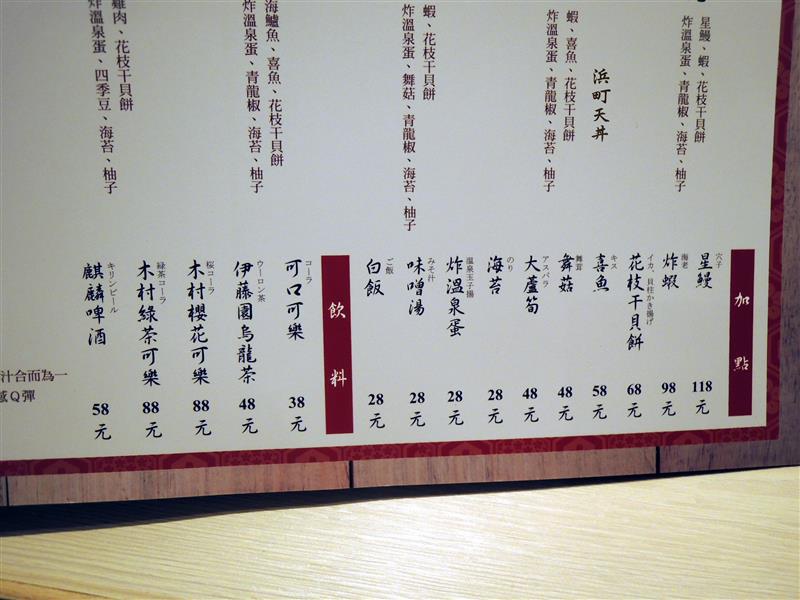 星鰻、蝦、花枝干貝餅
炸溫泉蛋、青龍椒、海苔、柚子
浜町天丼
蝦、喜魚、花枝干貝餅
炸溫泉蛋、青龍椒、海苔、柚子
蝦、花枝干貝餅
炸溫泉蛋、舞菇、青龍椒、海苔、柚子
海鱸魚、喜魚、花枝干貝餅
炸溫泉蛋、青龍椒、海苔、柚子
雞肉、花枝干貝餅
炸溫泉蛋、四季豆、海苔、柚子
加點
穴子
星鰻 118元
海老
炸蝦 98元
イカ、貝柱かき揚げ
花枝干貝餅 68元
キス
喜魚 58元
舞茸
舞菇 48元
アスパラ
大蘆筍 48元
のり
海苔 28元
温泉玉子揚
炸溫泉蛋 28元
みそ汁
味噌湯 28元
ご飯
白飯 28元
飲料
コーラ
可口可樂 38元
ウーロン茶
伊藤園烏龍茶 48元
桜コーラ
木村櫻花可樂 88元
緑茶コーラ
木村綠茶可樂 88元
キリンビール
麒麟啤酒 58元
汁合而為一
感Q彈